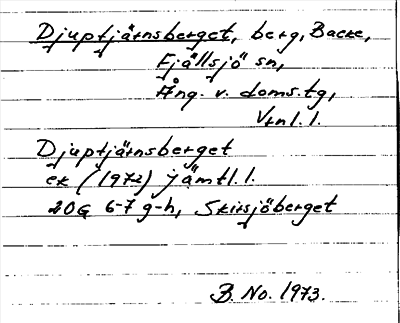 Djuptjärnsberget, berg, Backe,
Fjällsjö sn,
Ång. v. doms.tg,
Vtnl. l.
Djuptjärnsberget
ek (1972) Jämtl. l.
20G 6-7 g-h, Skirsjöberget
B. No. 1973.